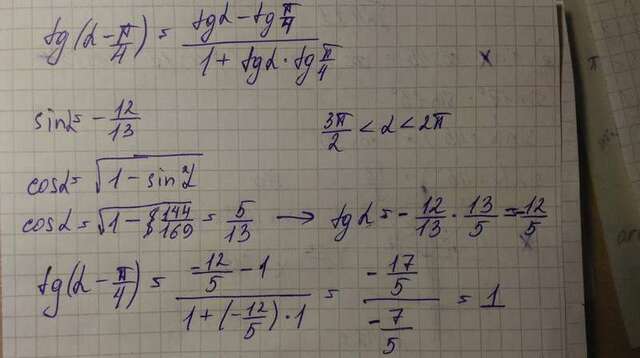 tg(α - π/4) = (tgα - tg π/4)/(1 + tgα · tg π/4)
sinα = - 12/13    3π/2 < α < 2π
cosα = √(1 - sin²α)
cosα = √(1 - 144/169) = 5/13 → tgα = - 12/13 · 13/5 = -12/5
tg(α - π/4) = (-12/5 - 1)/(1 + (-12/5) · 1) = (-17/5)/(-7/5) = 1